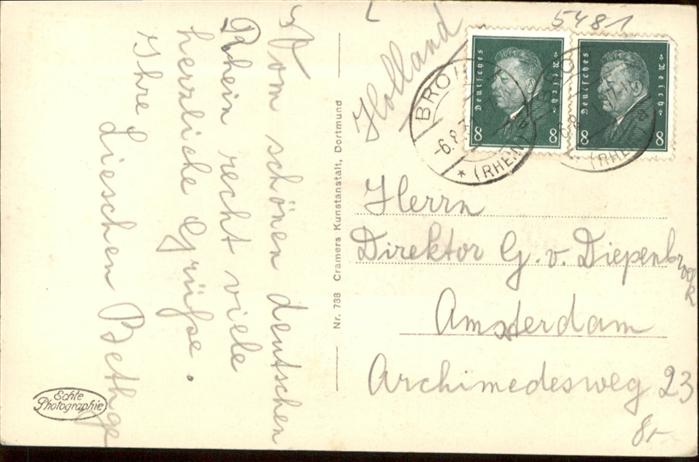 Vom schönen deutschen
Rhein recht viele
herzliche Grüße.
Ihre
Lieschen Bethge
Echte
Photographie
Nr. 738 Cramers Kunstanstalt, Dortmund
5481
Holland
Deutsches Reich
8 8
Deutsches Reich
8 8
-6.8
* (RHEIN
(RHEIN
Herrn
Direktor G. v. Diepenbrock
Amsterdam
Archimedesweg 23
8r